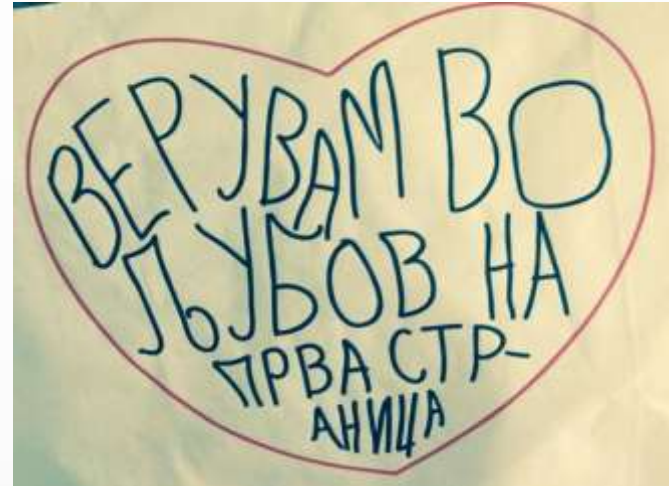 ВЕРУВАМ ВО
ЉУБОВ НА
ПРВА СТР-
АНИЦА